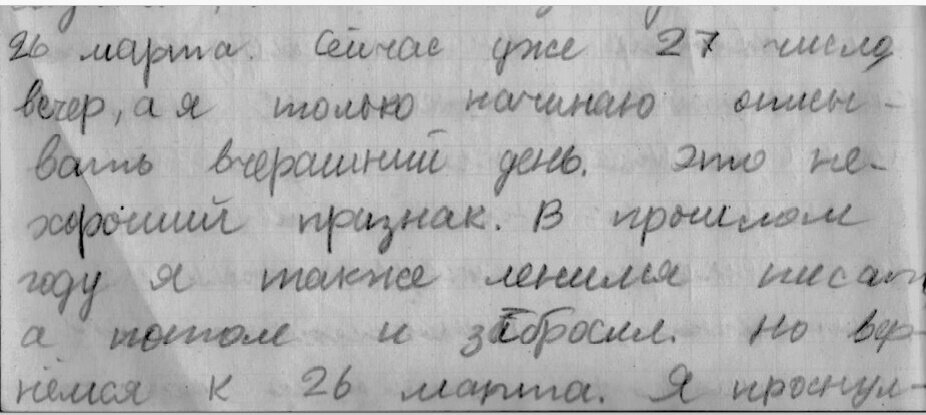 26 марта. Сейчас уже 27 число
вечер, а я только начинаю описы-
вать вчерашний день. Это не-
хороший признак. В прошлом
году я также ленился писать
а потом и забросил. Но вер-
нёмся к 26 марта. Я проснул-